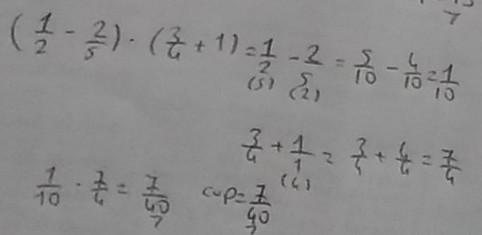 (1/2 - 2/5) · (3/4 + 1) = 1/2 - 2/5 = 5/10 - 4/10 = 1/10
(5) (2)
3/4 + 1/1 = 3/4 + 4/4 = 7/4
(4)
1/10 · 7/4 = 7/40 = 7/40